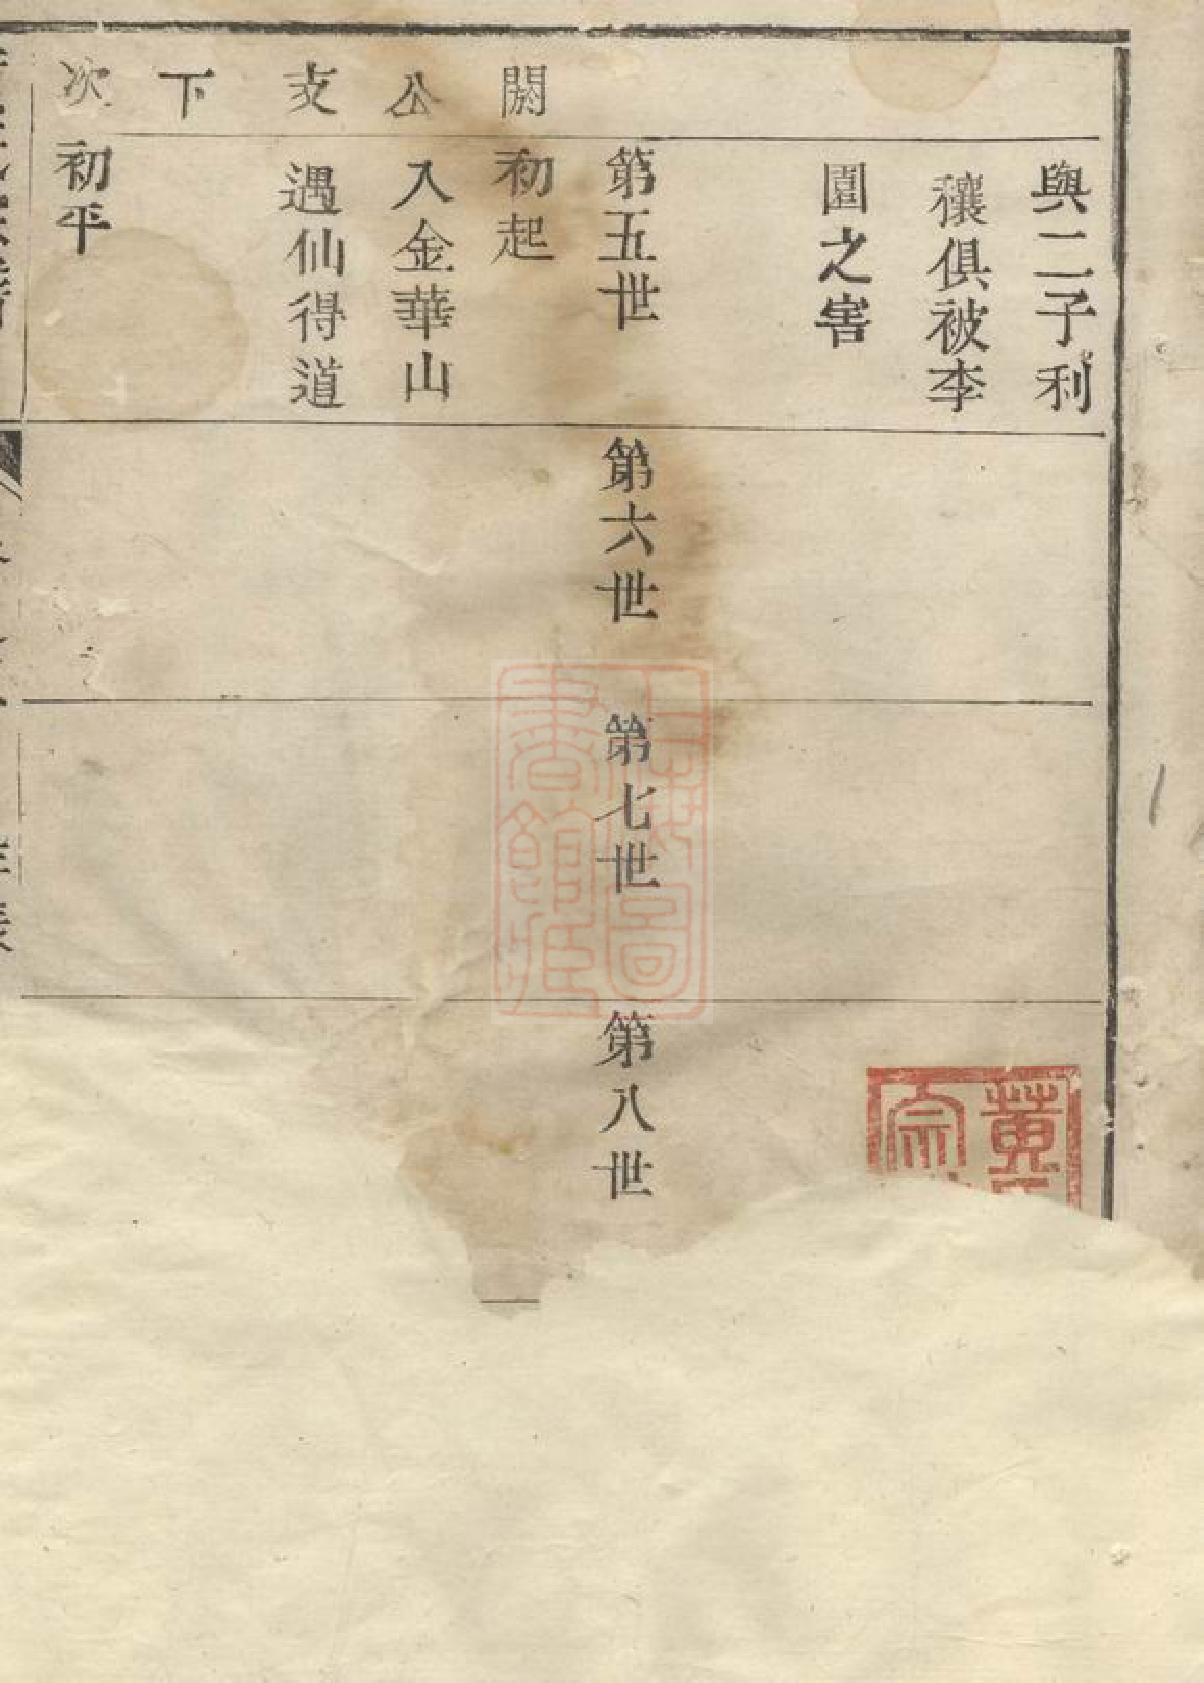 與二子利
穰俱被李
園之害
第五世
第六世
第七世
第八世
閼
初起
公
入金華山
支
遇仙得道
下
次
初平
上海圖
書館藏
黄
宗